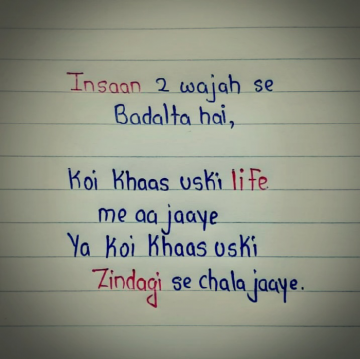 Insaan 2 wajah se
Badalta hai,
Koi Khaas uski life
me aa jaaye
Ya Koi Khaas uski
Zindagi se chala jaaye.